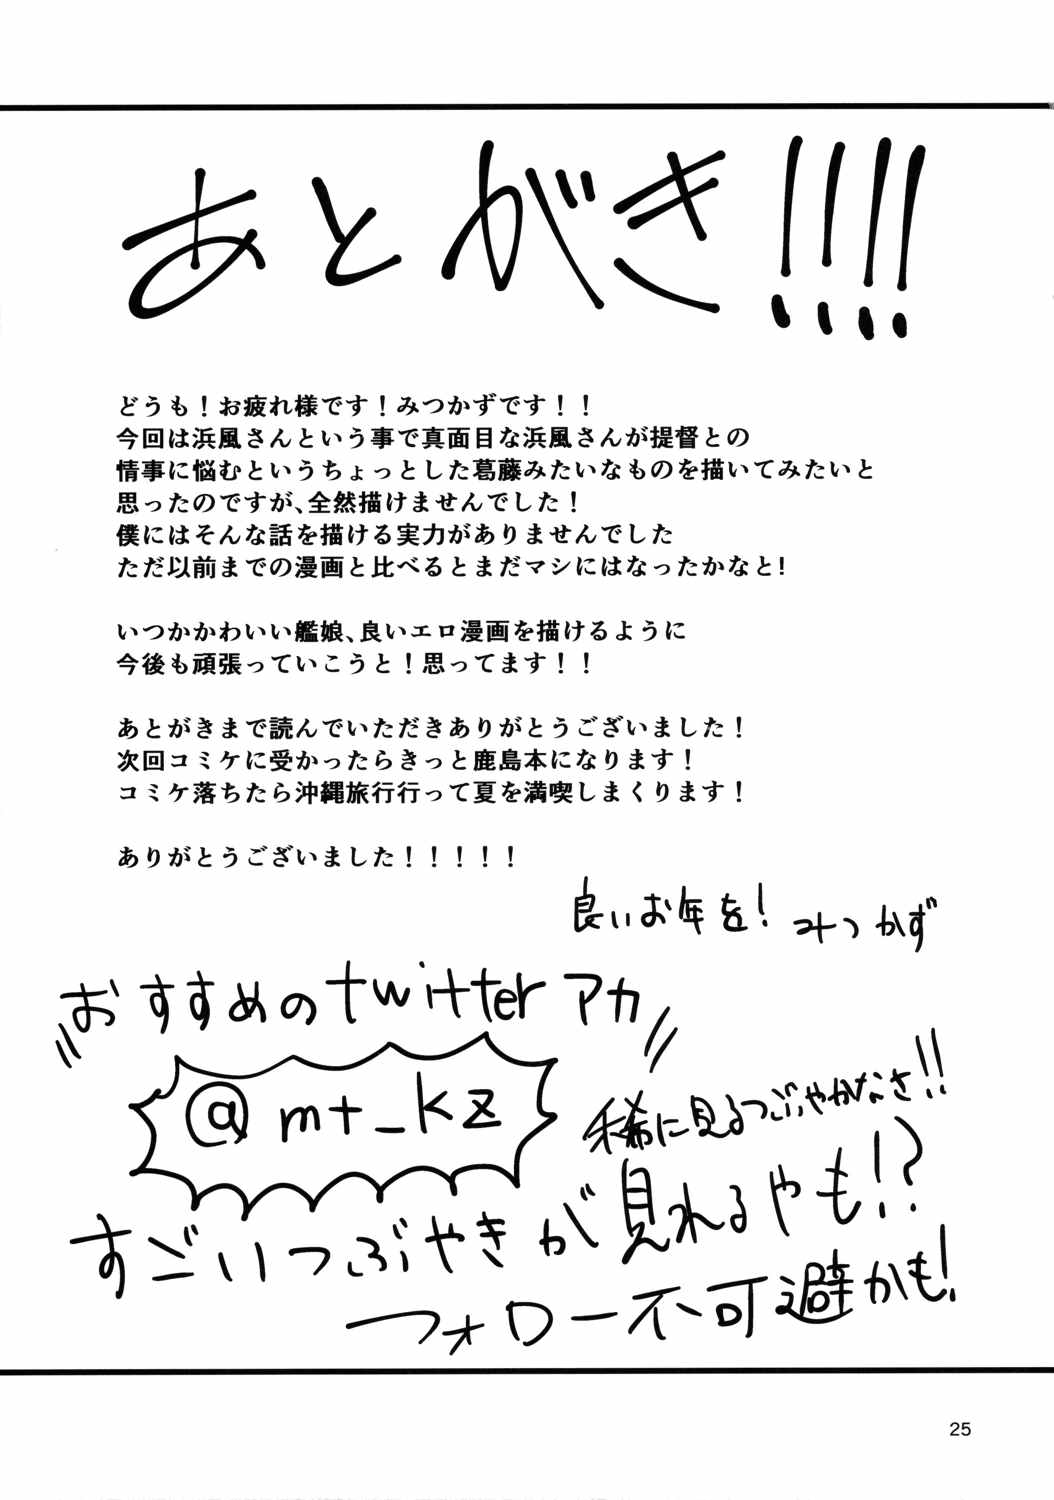 あとがき!!!!
どうも！お疲れ様です！みつかずです！！
今回は浜風さんという事で真面目な浜風さんが提督との
情事に悩むというちょっとした葛藤みたいなものを描いてみたいと
思ったのですが、全然描けませんでした！
僕にはそんな話を描ける実力がありませんでした
ただ以前までの漫画と比べるとまだマシにはなったかなと!
いつかかわいい艦娘、良いエロ漫画を描けるように
今後も頑張っていこうと！思ってます！！
あとがきまで読んでいただきありがとうございました！
次回コミケに受かったらきっと鹿島本になります！
コミケ落ちたら沖縄旅行行って夏を満喫しまくります！
ありがとうございました！！！！！
良いお年を！ みつかず
おすすめのtwitterアカ
@mt_kz
稀に見るつぶやかなさ!!
すごいつぶやきが見れるやも!?
フォロー不可避かも!
25